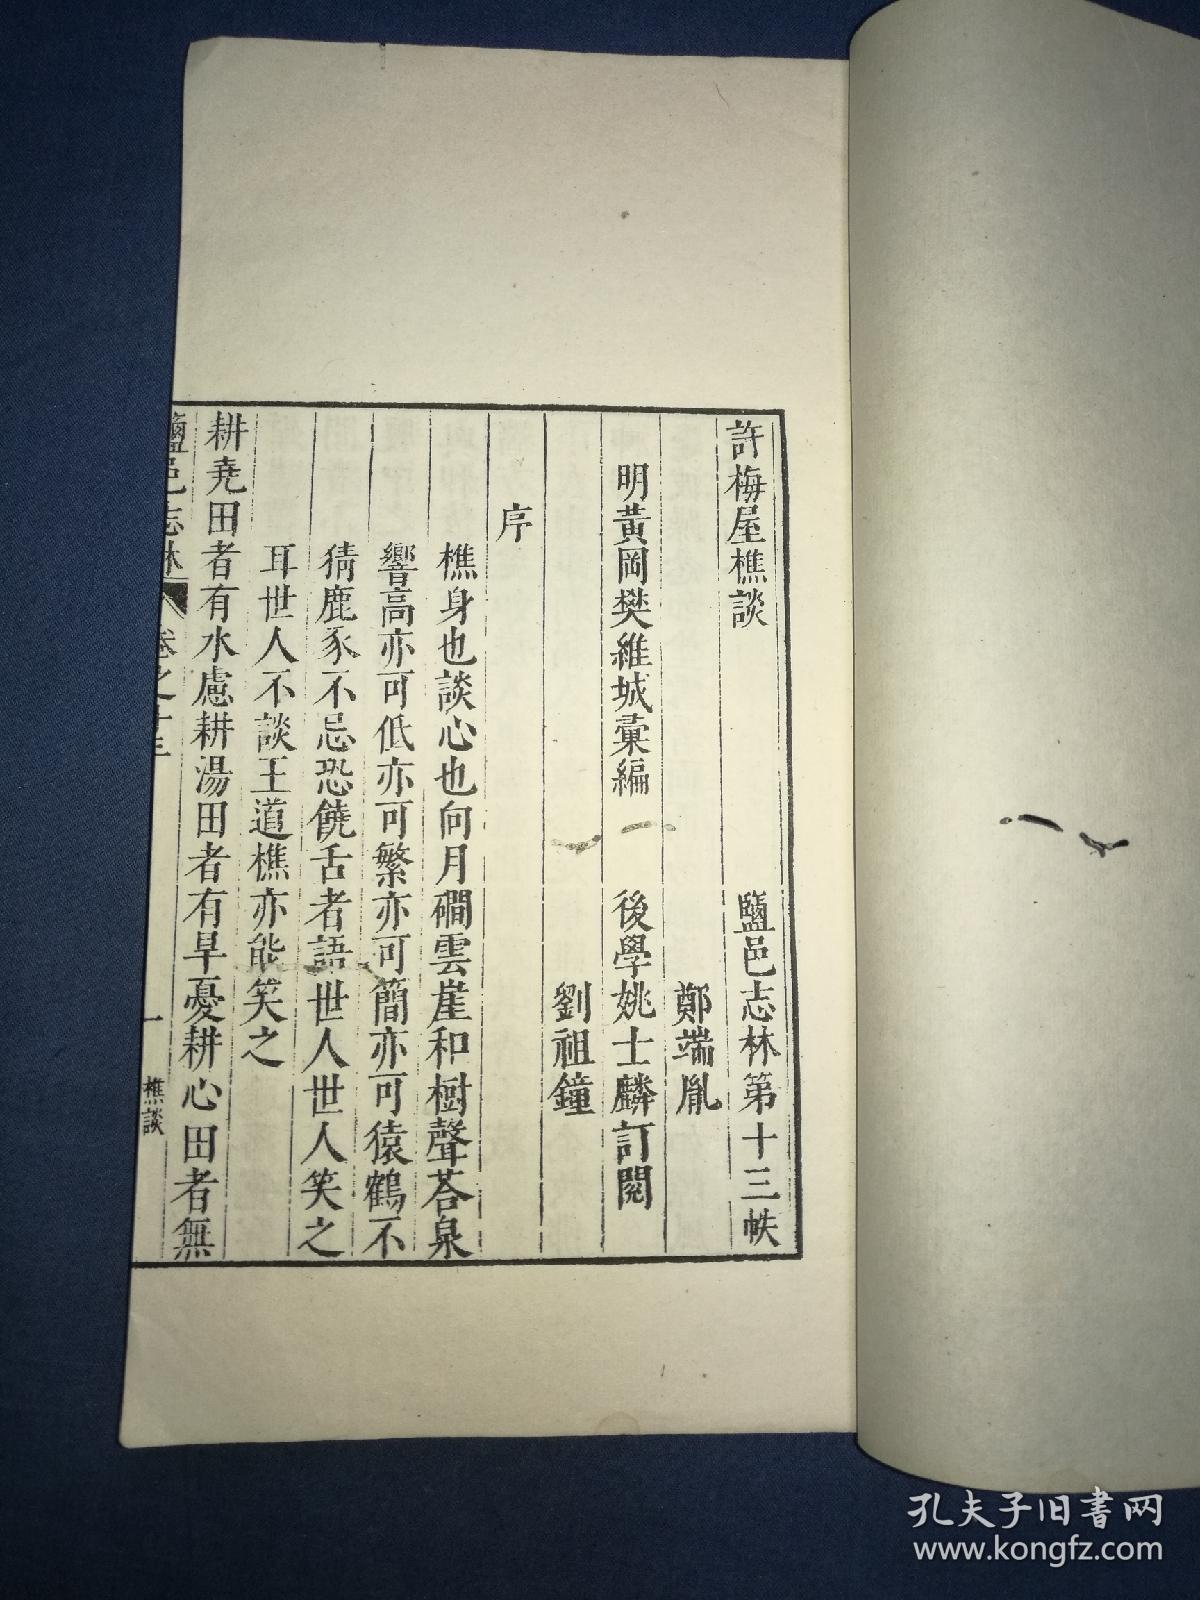 許梅屋樵談 鹽邑志林第十三帙
鄭端胤
明黃岡樊維城彙編 後學姚士麟訂閱
劉祖鐘
序
樵身也談心也向月磵雲崖和樹聲荅泉
響高亦可低亦可繁亦可簡亦可猿鶴不
猜鹿豕不忌恐饒舌者語世人世人笑之
耳世人不談王道樵亦能笑之
耕堯田者有水慮耕湯田者有旱憂耕心田者無
鹽邑志林 卷之十三 一 樵談
孔夫子旧书网
www.kongfz.com